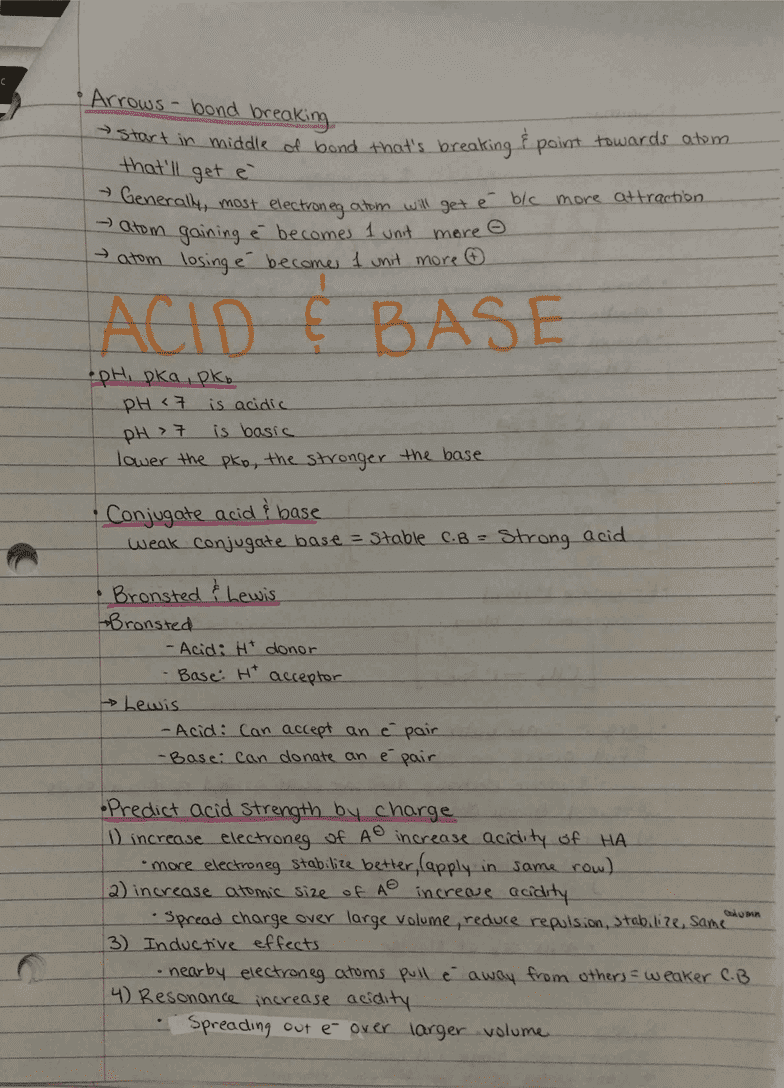 • Arrows - bond breaking
→ start in middle of bond that's breaking & point towards atom
that'll get e⁻
→ Generally, most electroneg atom will get e⁻ b/c more attraction
→ atom gaining e⁻ becomes 1 unit more ⊖
→ atom losing e⁻ becomes 1 unit more ⊕
ACID & BASE
• pH, pKa, pKb
pH < 7 is acidic
pH > 7 is basic
lower the pKb, the stronger the base
• Conjugate acid & base
weak conjugate base = Stable C.B = Strong acid
• Bronsted & Lewis
→Bronsted
- Acid: H⁺ donor
- Base: H⁺ acceptor
→ Lewis
- Acid: Can accept an e⁻ pair
- Base: Can donate an e⁻ pair
• Predict acid strength by charge
1) increase electroneg of A⊖ increase acidity of HA
• more electroneg stabilize better, (apply in same row)
2) increase atomic size of A⊖ increase acidity
• Spread charge over large volume, reduce repulsion, stabilize, same column
3) Inductive effects
• nearby electroneg atoms pull e⁻ away from others = weaker C.B
4) Resonance increase acidity
• Spreading out e⁻ over larger volume